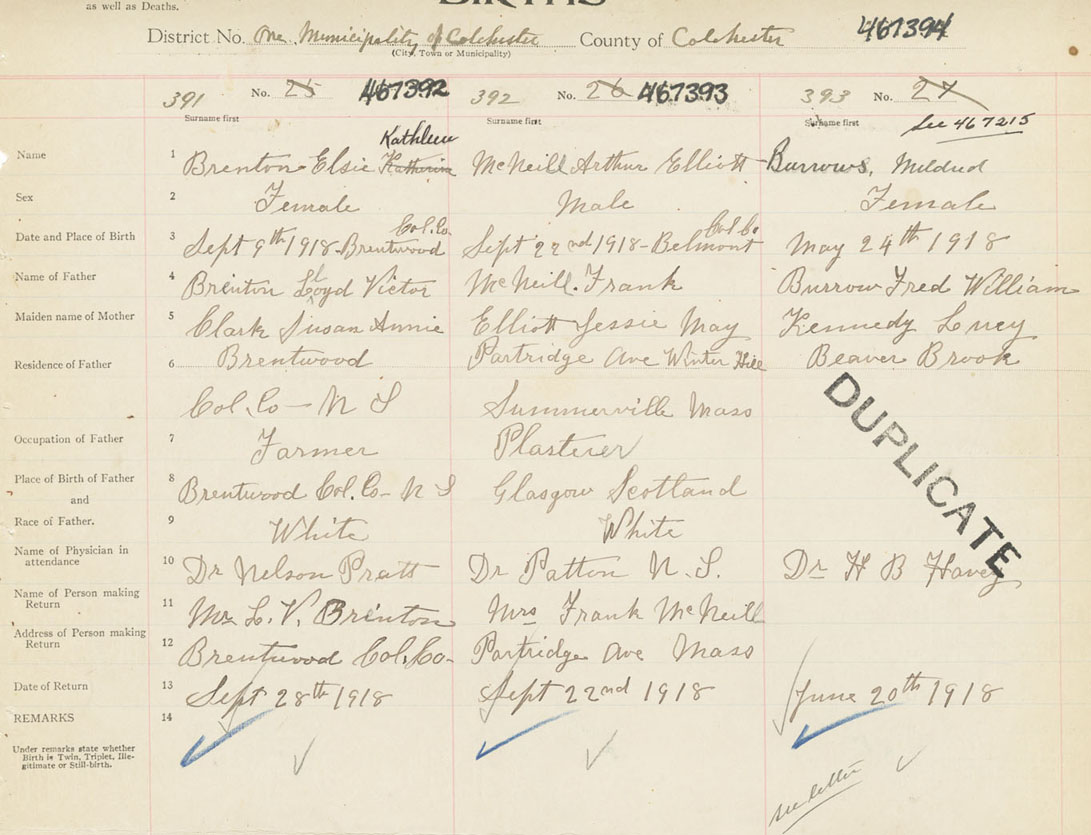 as well as Deaths.
BIRTHS
District No. One Municipality of Colchester County of Colchester 467394
(City, Town or Municipality)
391 No. 25 467392 392 No. 26 467393 393 No. 27
Surname first Surname first Surname first
See 467215
Kathleen
Name 1 Brenton Elsie Katherine McNeill Arthur Elliott Burrows, Mildred
Sex 2 Female Male Female
Col. Co. Col Co
Date and Place of Birth 3 Sept 9th 1918-Brentwood Sept 22nd 1918-Belmont May 24th 1918
Name of Father 4 Brenton Lloyd Victor McNeill. Frank Burrow Fred William
Maiden name of Mother 5 Clark Susan Annie Elliott Jessie May Kennedy Lucy
Residence of Father 6 Brentwood Partridge Ave Winter Hill Beaver Brook
Col. Co - N S Summerville Mass
DUPLICATE
Occupation of Father 7 Farmer Plasterer
Place of Birth of Father 8 Brentwood Col. Co- N S Glasgow Scotland
and
Race of Father. 9 White White
Name of Physician in
attendance 10 Dr Nelson Pratt Dr Patton N. S. Dr H B Havey
Name of Person making
Return 11 Mr L. V. Brenton Mrs Frank McNeill
Address of Person making
Return 12 Brentwood Col. Co- Partridge Ave Mass
Date of Return 13 Sept 28th 1918 Sept 22nd 1918 June 20th 1918
REMARKS 14
Under remarks state whether
Birth is Twin, Triplet, Ille-
gitimate or Still-birth.
see letter